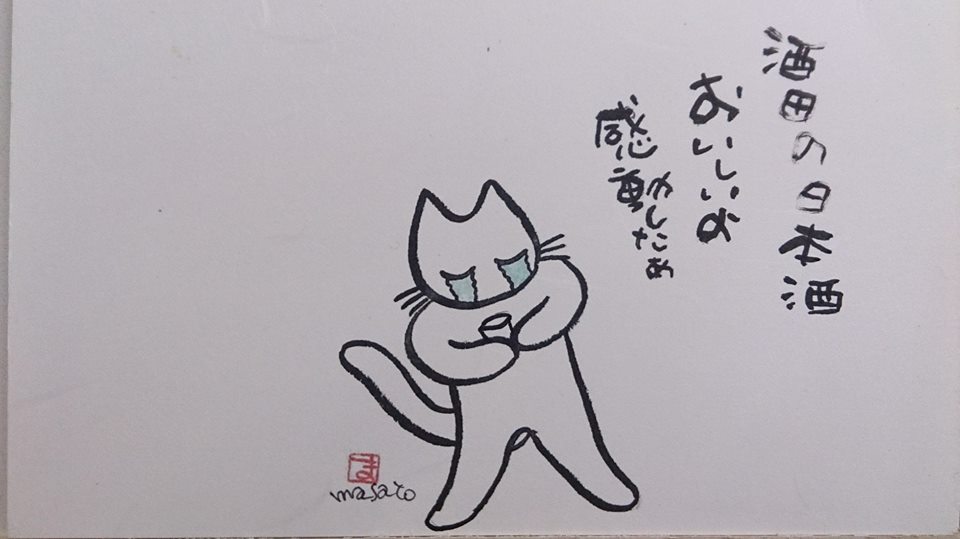 酒田の日本酒
おいしいよ
感動したぁ
masato